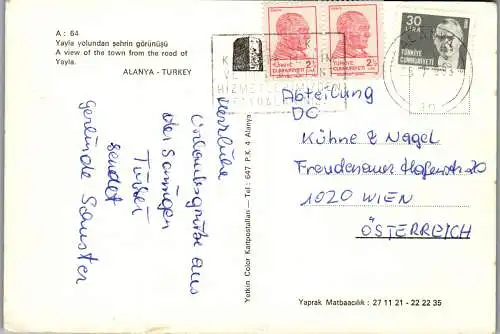 A : 64
Yayla yolundan şehrin görünüşü
A view of the town from the road of
Yayla.
ALANYA - TURKEY
Herzliche
Urlaubsgrüße aus
der Sonnigen
Türkei
sendet
Gerlinde Schuster
Yetkin Color Kartpostalları — Tel : 647 P.K. 4 Alanya
TÜRKİYE
CUMHURİYETİ
2½
TÜRKİYE
CUMHURİYETİ
2½
30
LİRA
TÜRKİYE
CUMHURİYETİ
Abteilung
DC
Kühne & Nagel
Freudenauer Hafenstr. 20
1020 WIEN
ÖSTERREICH
Yaprak Matbaacılık : 27 11 21 - 22 22 35